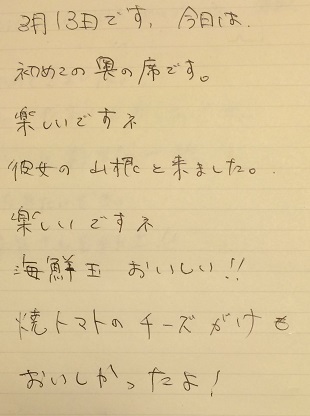 3月13日です。今日は
初めての奥の席です。
楽しいですネ
彼女の山根と来ました。
楽しいですネ
海鮮玉 おいしい!!
焼トマトのチーズがけも
おいしかったよ!